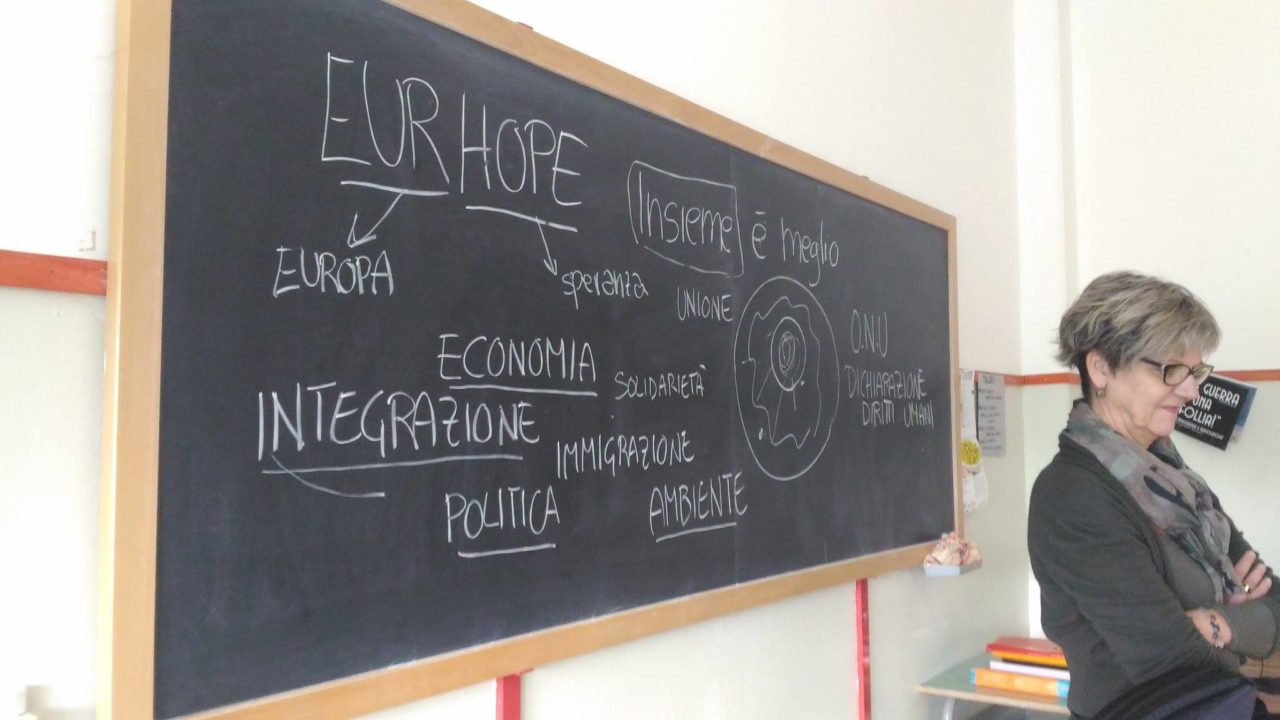 EURHOPE
EUROPA
speranza
Insieme è meglio
UNIONE
O.N.U
DICHIARAZIONE
DIRITTI UMANI
ECONOMIA
SOLIDARIETÀ
INTEGRAZIONE
IMMIGRAZIONE
POLITICA
AMBIENTE
GUERRA
UNA